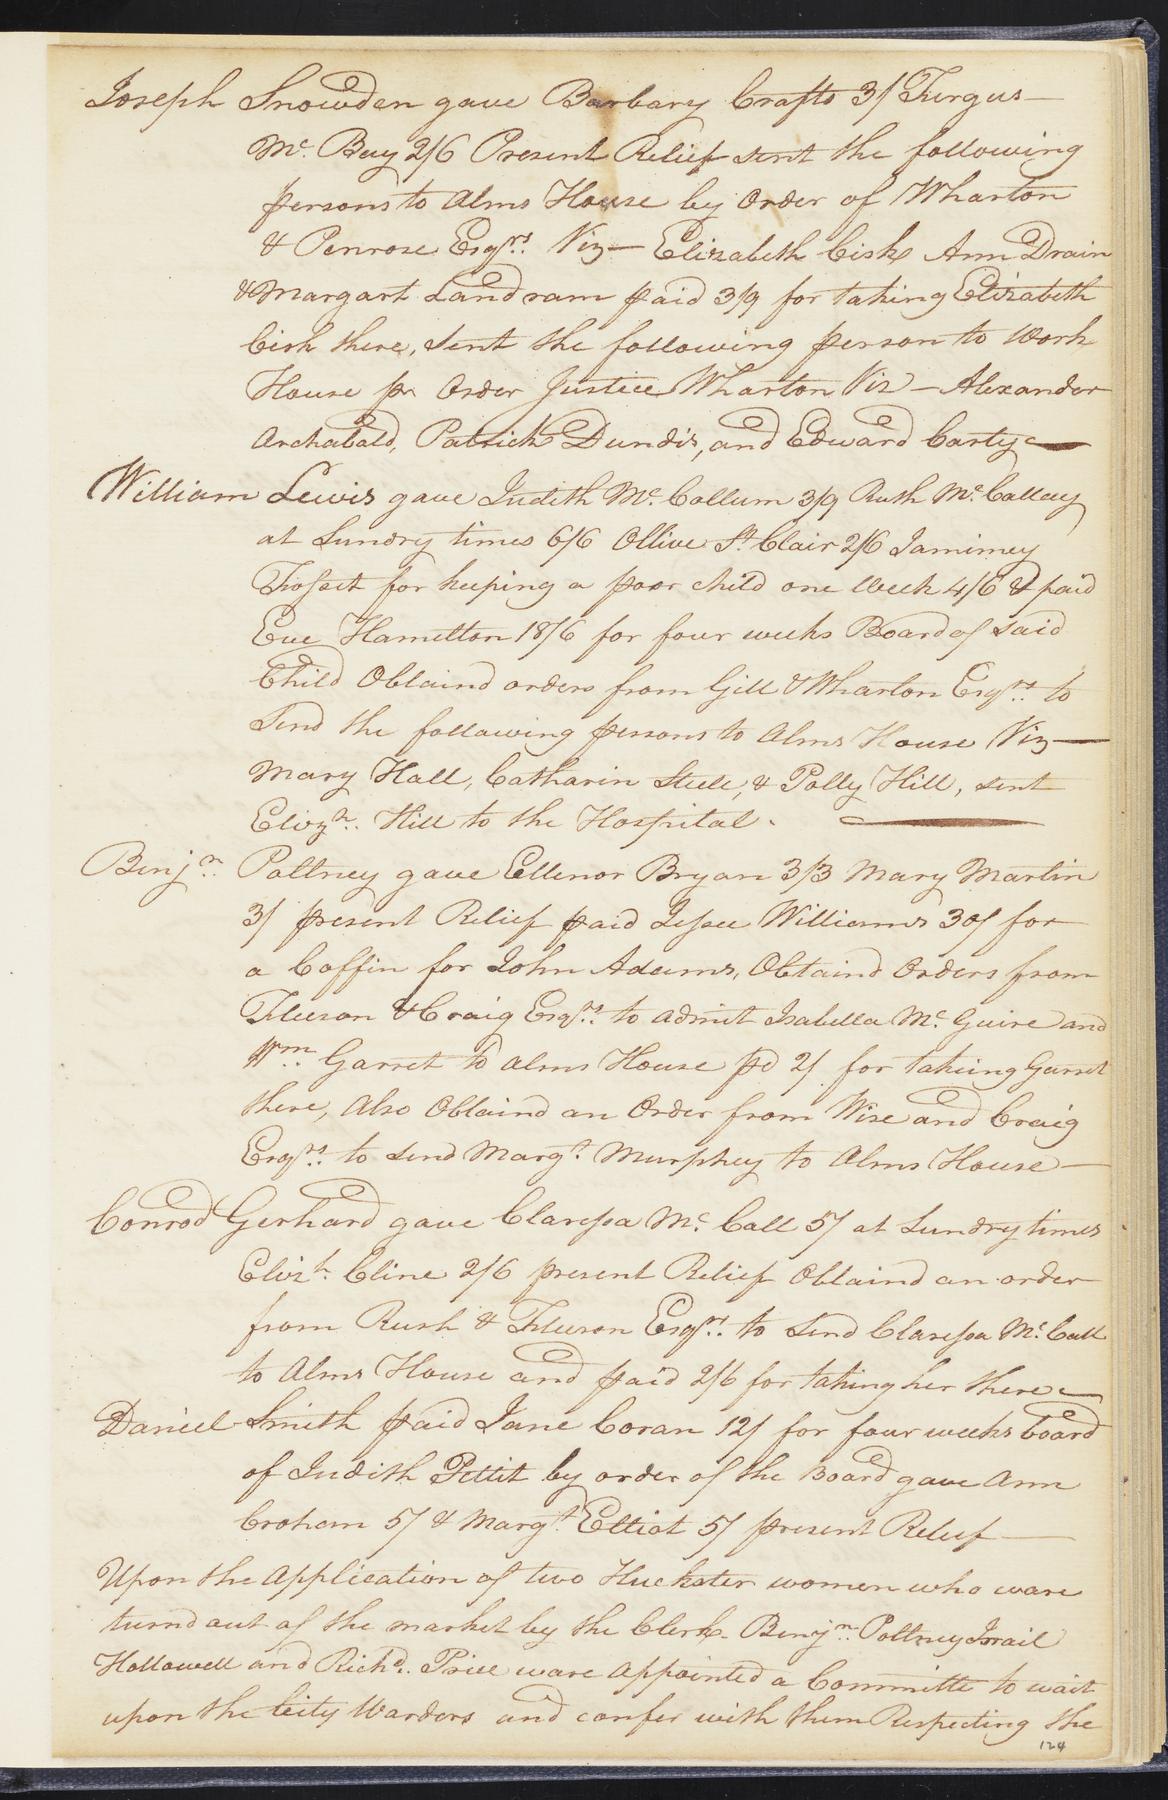 Joseph Snowden gave Barbary Crafts 3/ Fergus
Mc. Bay 2/6 Present Relief sent the following
persons to Alms House by Order of Wharton
& Penrose Esqrs. Viz— Elizabeth Cish Ann Drain
& Margart Landram paid 3/9 for taking Elizabeth
Cish there, sent the following person to Work
House pr Order Justice Wharton Viz — Alexander
Archabald, Patrick Dundis, and Edward Carty
William Lewis gave Judith Mc. Collum 3/9 Ruth Mc. Collay
at Sundry times 6/6 Ollive St. Clair 2/6 Jamimey
Fossett for keeping a poor child one Week 4/6 & paid
Eve Hamelton 18/6 for four weeks Board of said
Child Obtaind orders from Gill & Wharton Esqrs. to
Send the following persons to Alms House Viz—
Mary Hall, Catharin Steele, & Polly Hill, sent
Elizh. Hill to the Hospital.
Benjn. Poltney gave Ellenor Bryan 3/3 Mary Martin
3/ present Relief paid Jessee Williams 30/ for
a Coffin for John Adams, Obtaind Orders from
Fleeson & Craig Esqrs. to admit Isabella Mc. Guire and
Wm. Garret to Alms House pd 2/ for takeing Garret
there, Also Obtaind an Order from Wise and Craig
Esqrs. to send Margt. Murphey to Alms House—
Conrod Gerhard gave Claressa Mc. Call 5/ at Sundry times
Elizh. Cline 2/6 present Relief Obtaind an order
from Rush & Fleeson Esqrs. to Send Claressa Mc. Call
to Alms House and paid 2/6 for taking her there
Daniel Smith paid Jane Coran 12/ for four weeks board
of Judith Pettit by order of the Board gave Ann
Croham 5/ & Margt. Elliot 5/ present Relief
Upon the Application of two Huckster women who ware
turnd out of the market by the Clerk. Benjn. Poltney Israil
Hollowell and Richd. Price ware Appointed a Committe to wait
upon the City Warders and confer with them Respecting the
124